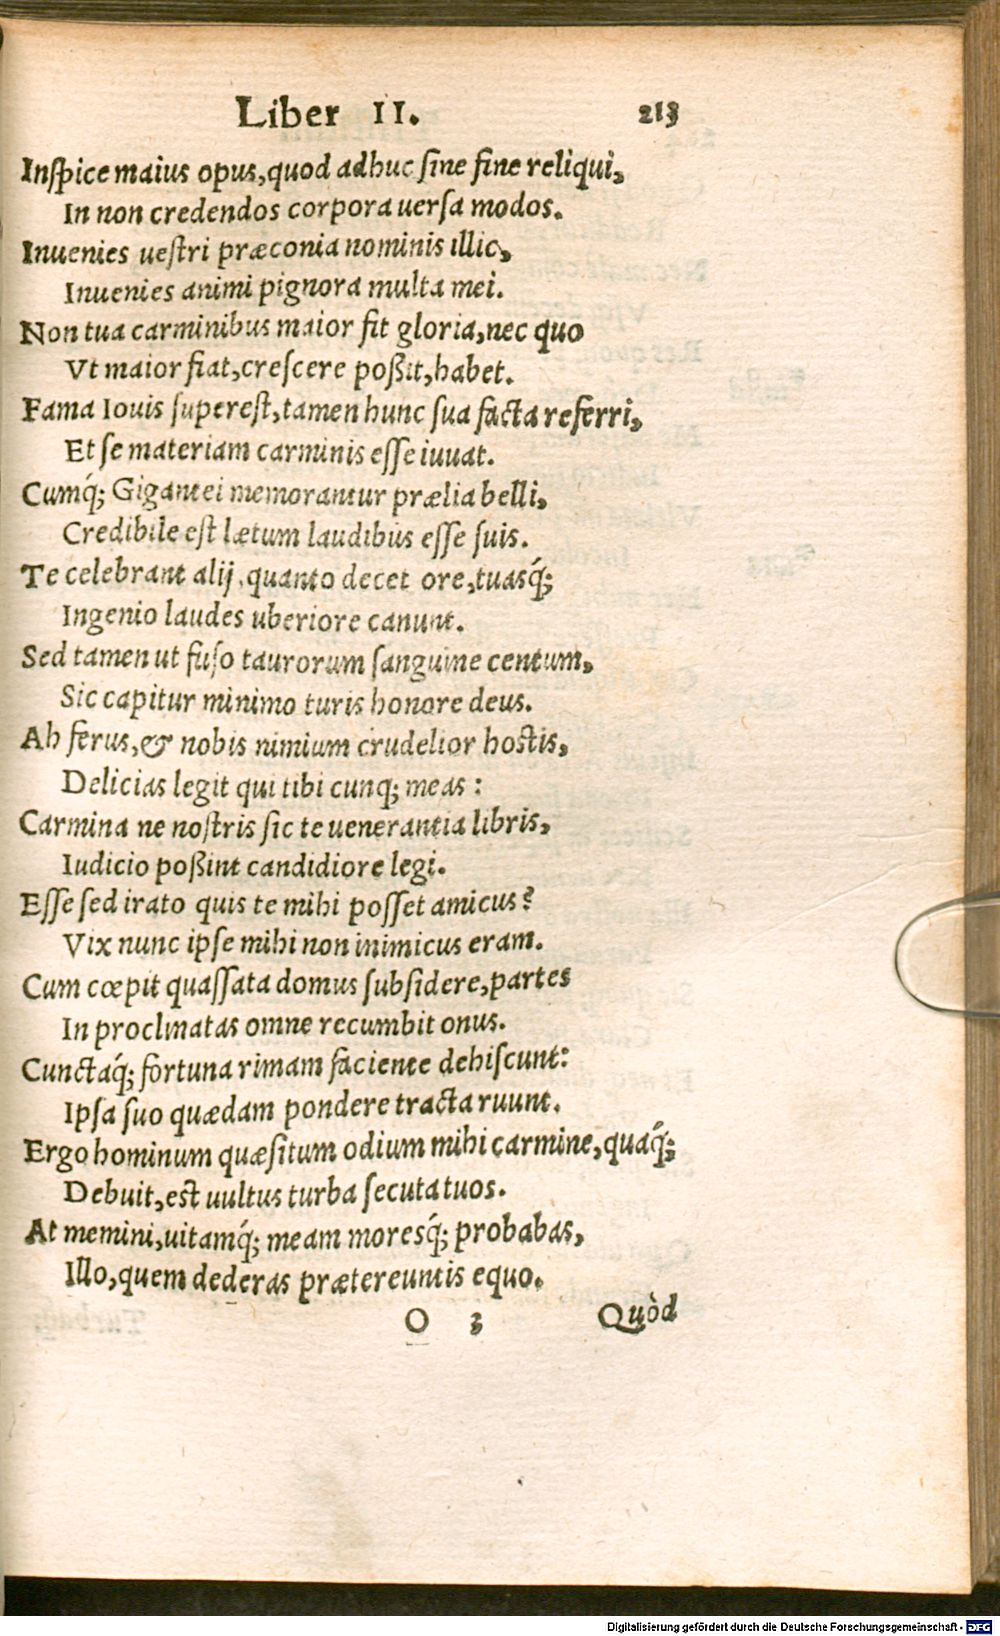 Liber II. 213
Inſpice maius opus, quod adhuc ſine fine reliqui,
In non credendos corpora uerſa modos.
Inuenies ueſtri præconia nominis illic,
Inuenies animi pignora multa mei.
Non tua carminibus maior fit gloria, nec quo
Vt maior fiat, creſcere poßit, habet.
Fama Iouis ſupereſt, tamen hunc ſua facta referri,
Et ſe materiam carminis eſſe iuuat.
Cumq́; Gigantei memorantur prælia belli,
Credibile eſt lætum laudibus eſſe ſuis.
Te celebrant alij, quanto decet ore, tuasq́;
Ingenio laudes uberiore canunt.
Sed tamen ut fuſo taurorum ſanguine centum,
Sic capitur minimo turis honore deus.
Ah ferus, & nobis nimium crudelior hostis,
Delicias legit qui tibi cunq; meas:
Carmina ne noſtris ſic te uenerantia libris,
Iudicio poßint candidiore legi.
Eſſe ſed irato quis te mihi poſſet amicus?
Vix nunc ipſe mihi non inimicus eram.
Cum cœpit quaſſata domus ſubſidere, partes
In proclinatas omne recumbit onus.
Cunctaq́; fortuna rimam faciente dehiſcunt:
Ipſa ſuo quædam pondere tracta ruunt.
Ergo hominum quæſitum odium mihi carmine, quaq́;
Debuit, est uultus turba ſecuta tuos.
At memini, uitamq́; meam moresq́; probabas,
Illo, quem dederas prætereuntis equo.
O 3 Quòd
Digitalisierung gefördert durch die Deutsche Forschungsgemeinschaft - DFG